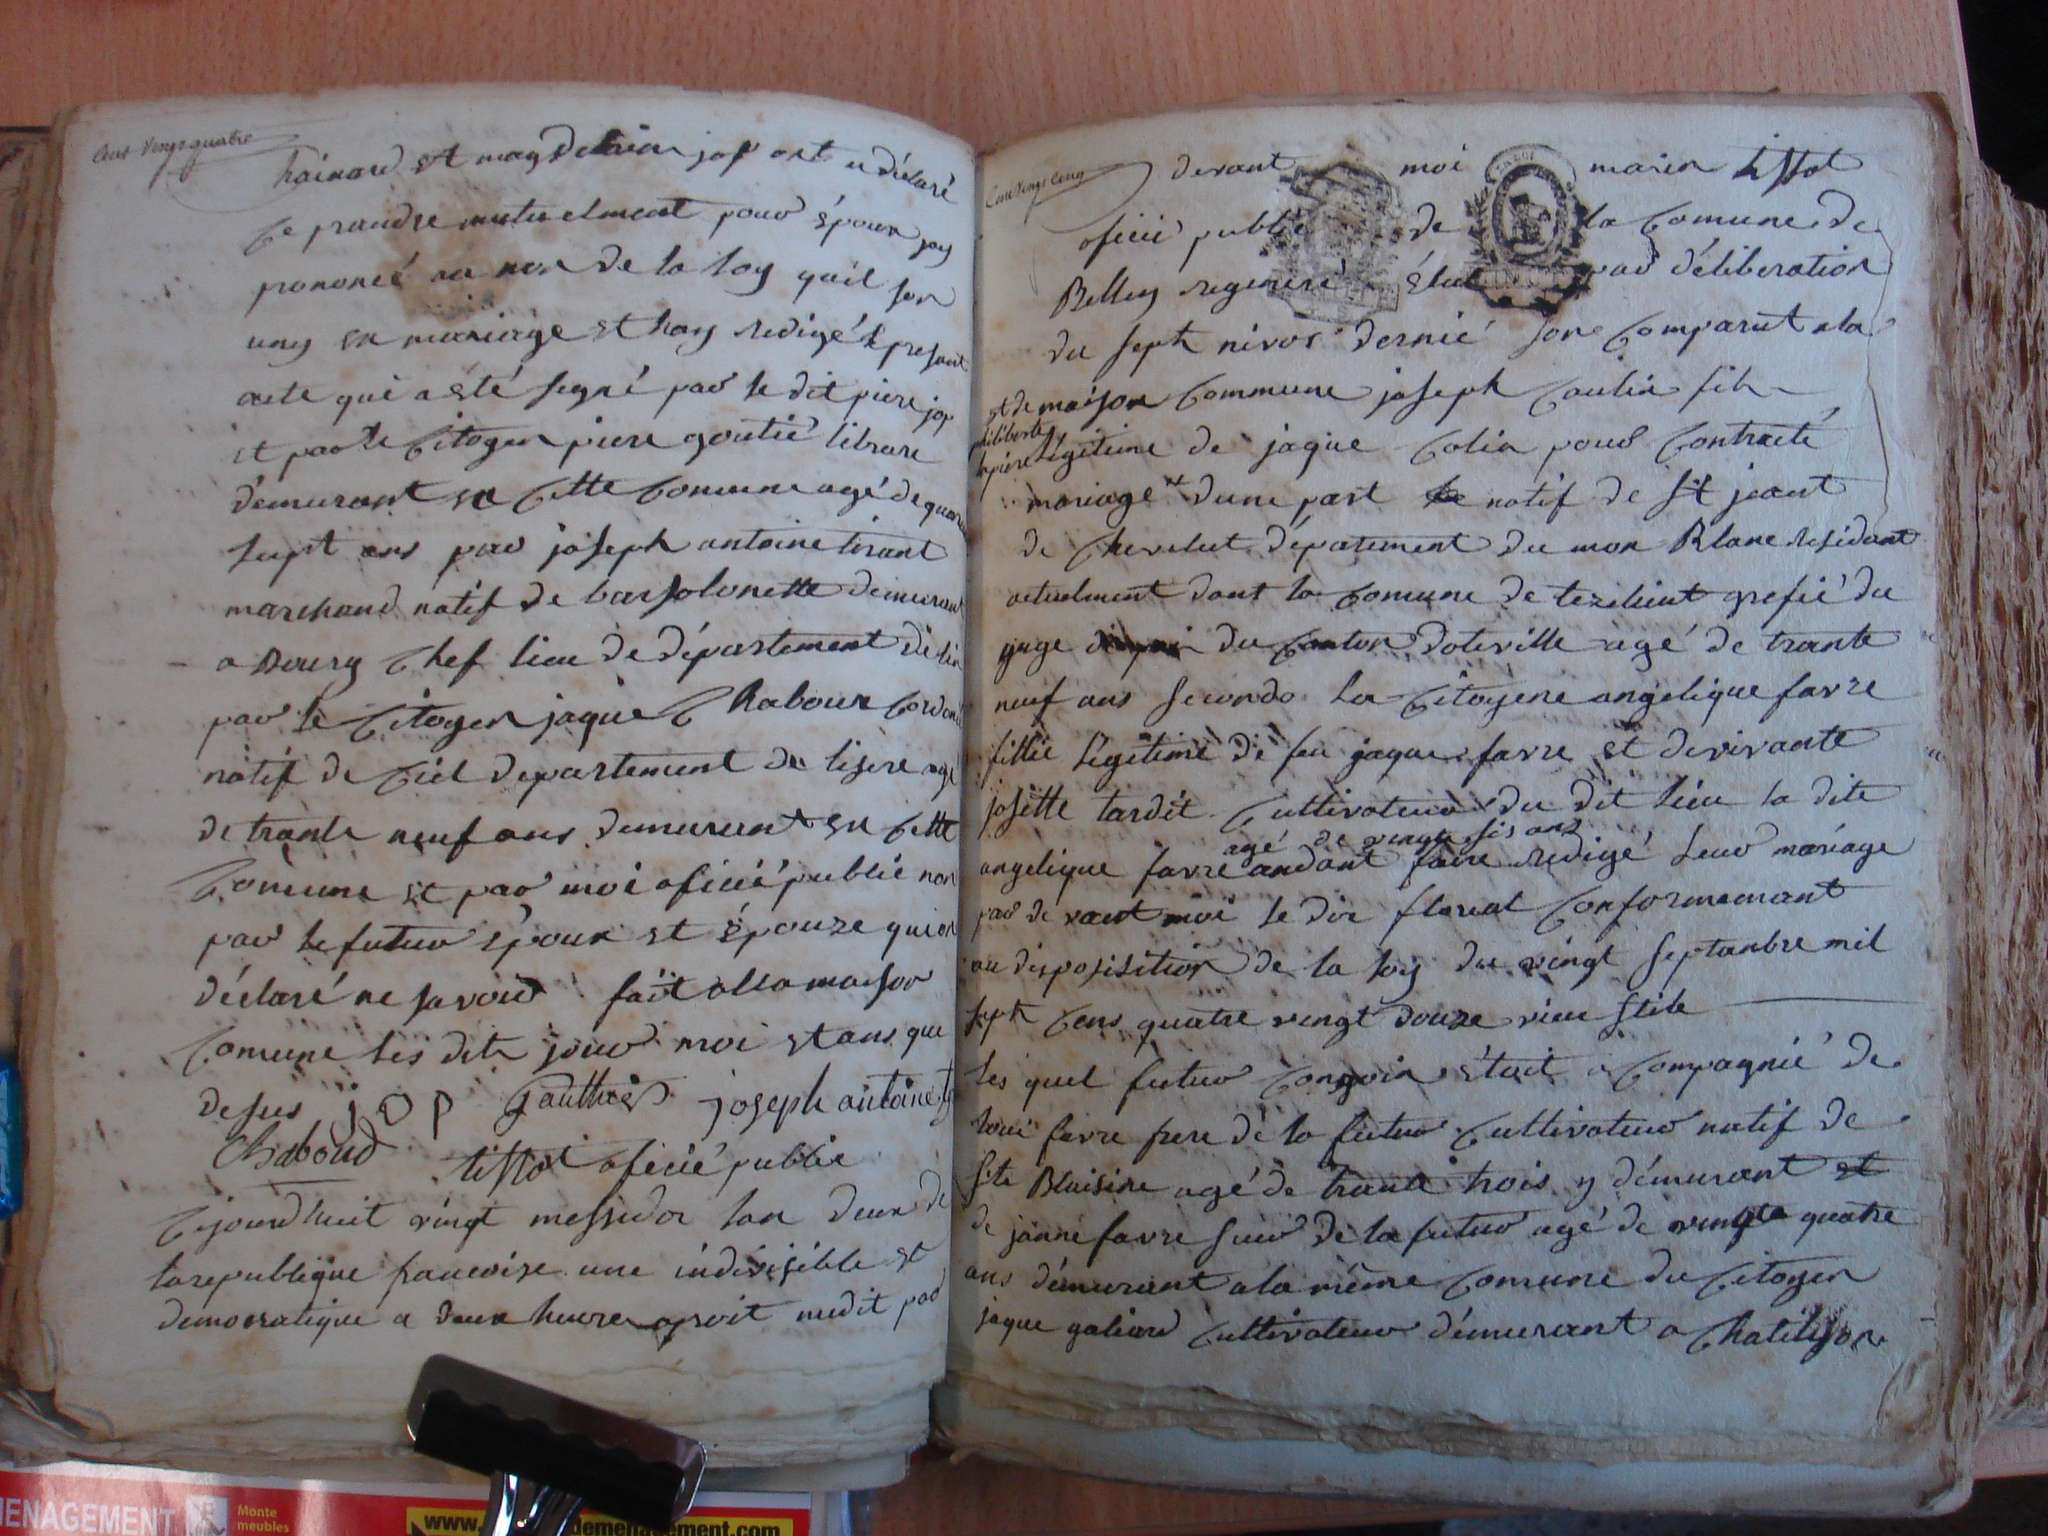 Cent vingt quatre
hainard et magdelaine jop ont déclaré
Ce prandre mutuelment pour épour jay
prononcé au non de la loy quil son
uny en mariage et hay redigé le presant
acte qui a été segné par le dit piere jop
et par le Citoyen piere goutié librare
démurant en Cette Comune agé de quarante
sept ans par joseph antoine tirant
marchand natif de barsolonette demurant
a Bourg Chef lieu de département de lin
par le Citoyen jaque Chaboux Cordonié
natif de Ciel departement de lisere agé
de trante neuf ans demurant en Cette
Comune et par moi oficié publié non
par le futur épour et épouze qui on
déclaré ne savoir fait alla maison
Comune les dit jour moi et ans que
desus jop gauthier joseph antoine
Chaboud tissot oficié publié
Cejourdhuit vingt messidor lan deux de
la republique francoise une indivisible et
democratique a deux heures aproit midit par
Cent vingt cinq
devant moi marin tissot
oficié publié de la Comune de
Belley regeneré élut par déliberation
du sept nivos dernié son Comparut ala
maison Commune joseph Caulin fils
et de philiberte lapiere
légitime de jaque Colin pour Contracté
mariage dune part natif de St jeant
de Chevelut département du mon Blanc residant
actuelment dant la Comune de tezelieut grefié du
juge du Canton doteville agé de trante
neuf ans secondo la Citoyene angelique favre
fillie légitime de feu jaque favre et de vivante
josette tardit Cultivateur du dit lieu la dite
agé de vingt sis ans
angelique favre andant faire redigé leur mariage
par de vant moi le dix floreal Conformemant
au disposisition de la loy du vingt septanbre mil
sept Cens quatre vingt douze vieu stile
les quel futur Conjoin était a Compagnié de
loui favre frere de la futur Cultivateur natif de
ste Blaisine agé de trante trois y démurant et
de janne favre seur de la futur agé de vingt quatre
ans démurant a la même Comune du Citoyen
jaque galiard Cultivateur démurant a Chatilyon
MENAGEMENT
Monte
meubles
www.
demenagement.com